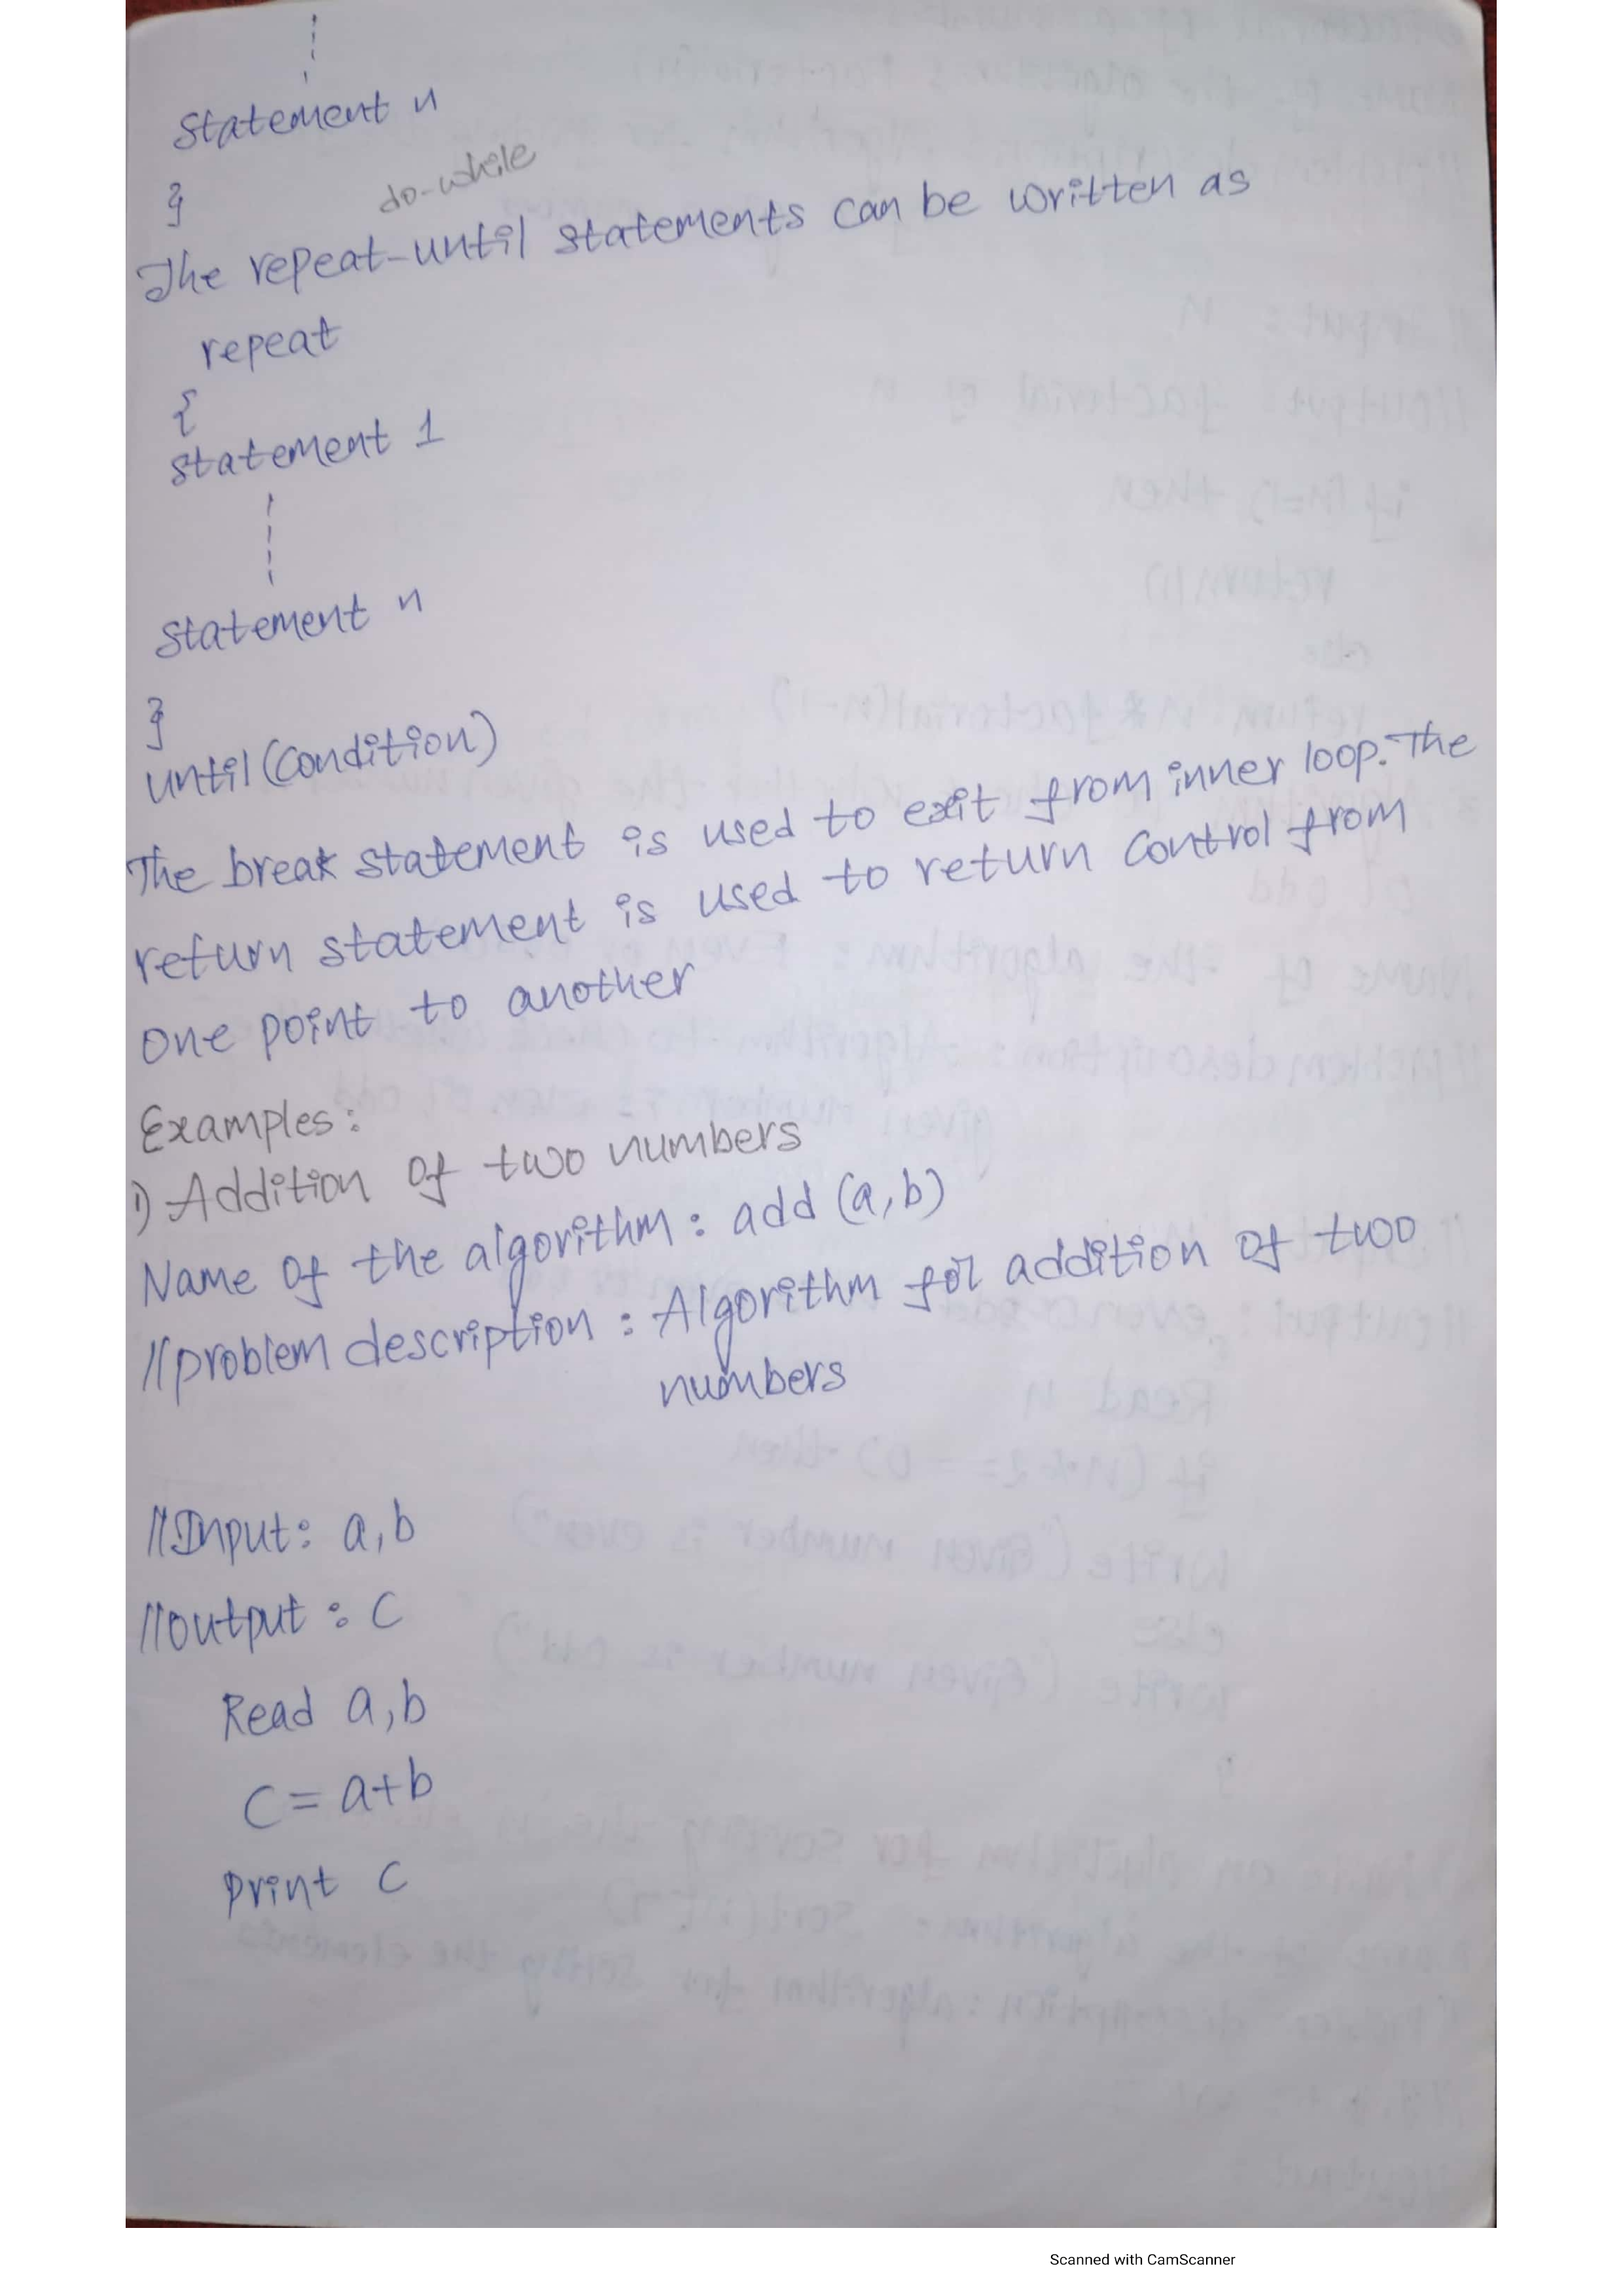 statement n
}
do-while
The repeat-until statements can be written as
repeat
{
statement 1
statement n
}
until (condition)
The break statement is used to exit from inner loop. The
return statement is used to return control from
one point to another
Examples:
1) Addition of two numbers
Name of the algorithm : add (a,b)
//problem description : Algorithm for addition of two
numbers
//Input: a,b
//output : C
Read a,b
C = a+b
print C
Scanned with CamScanner